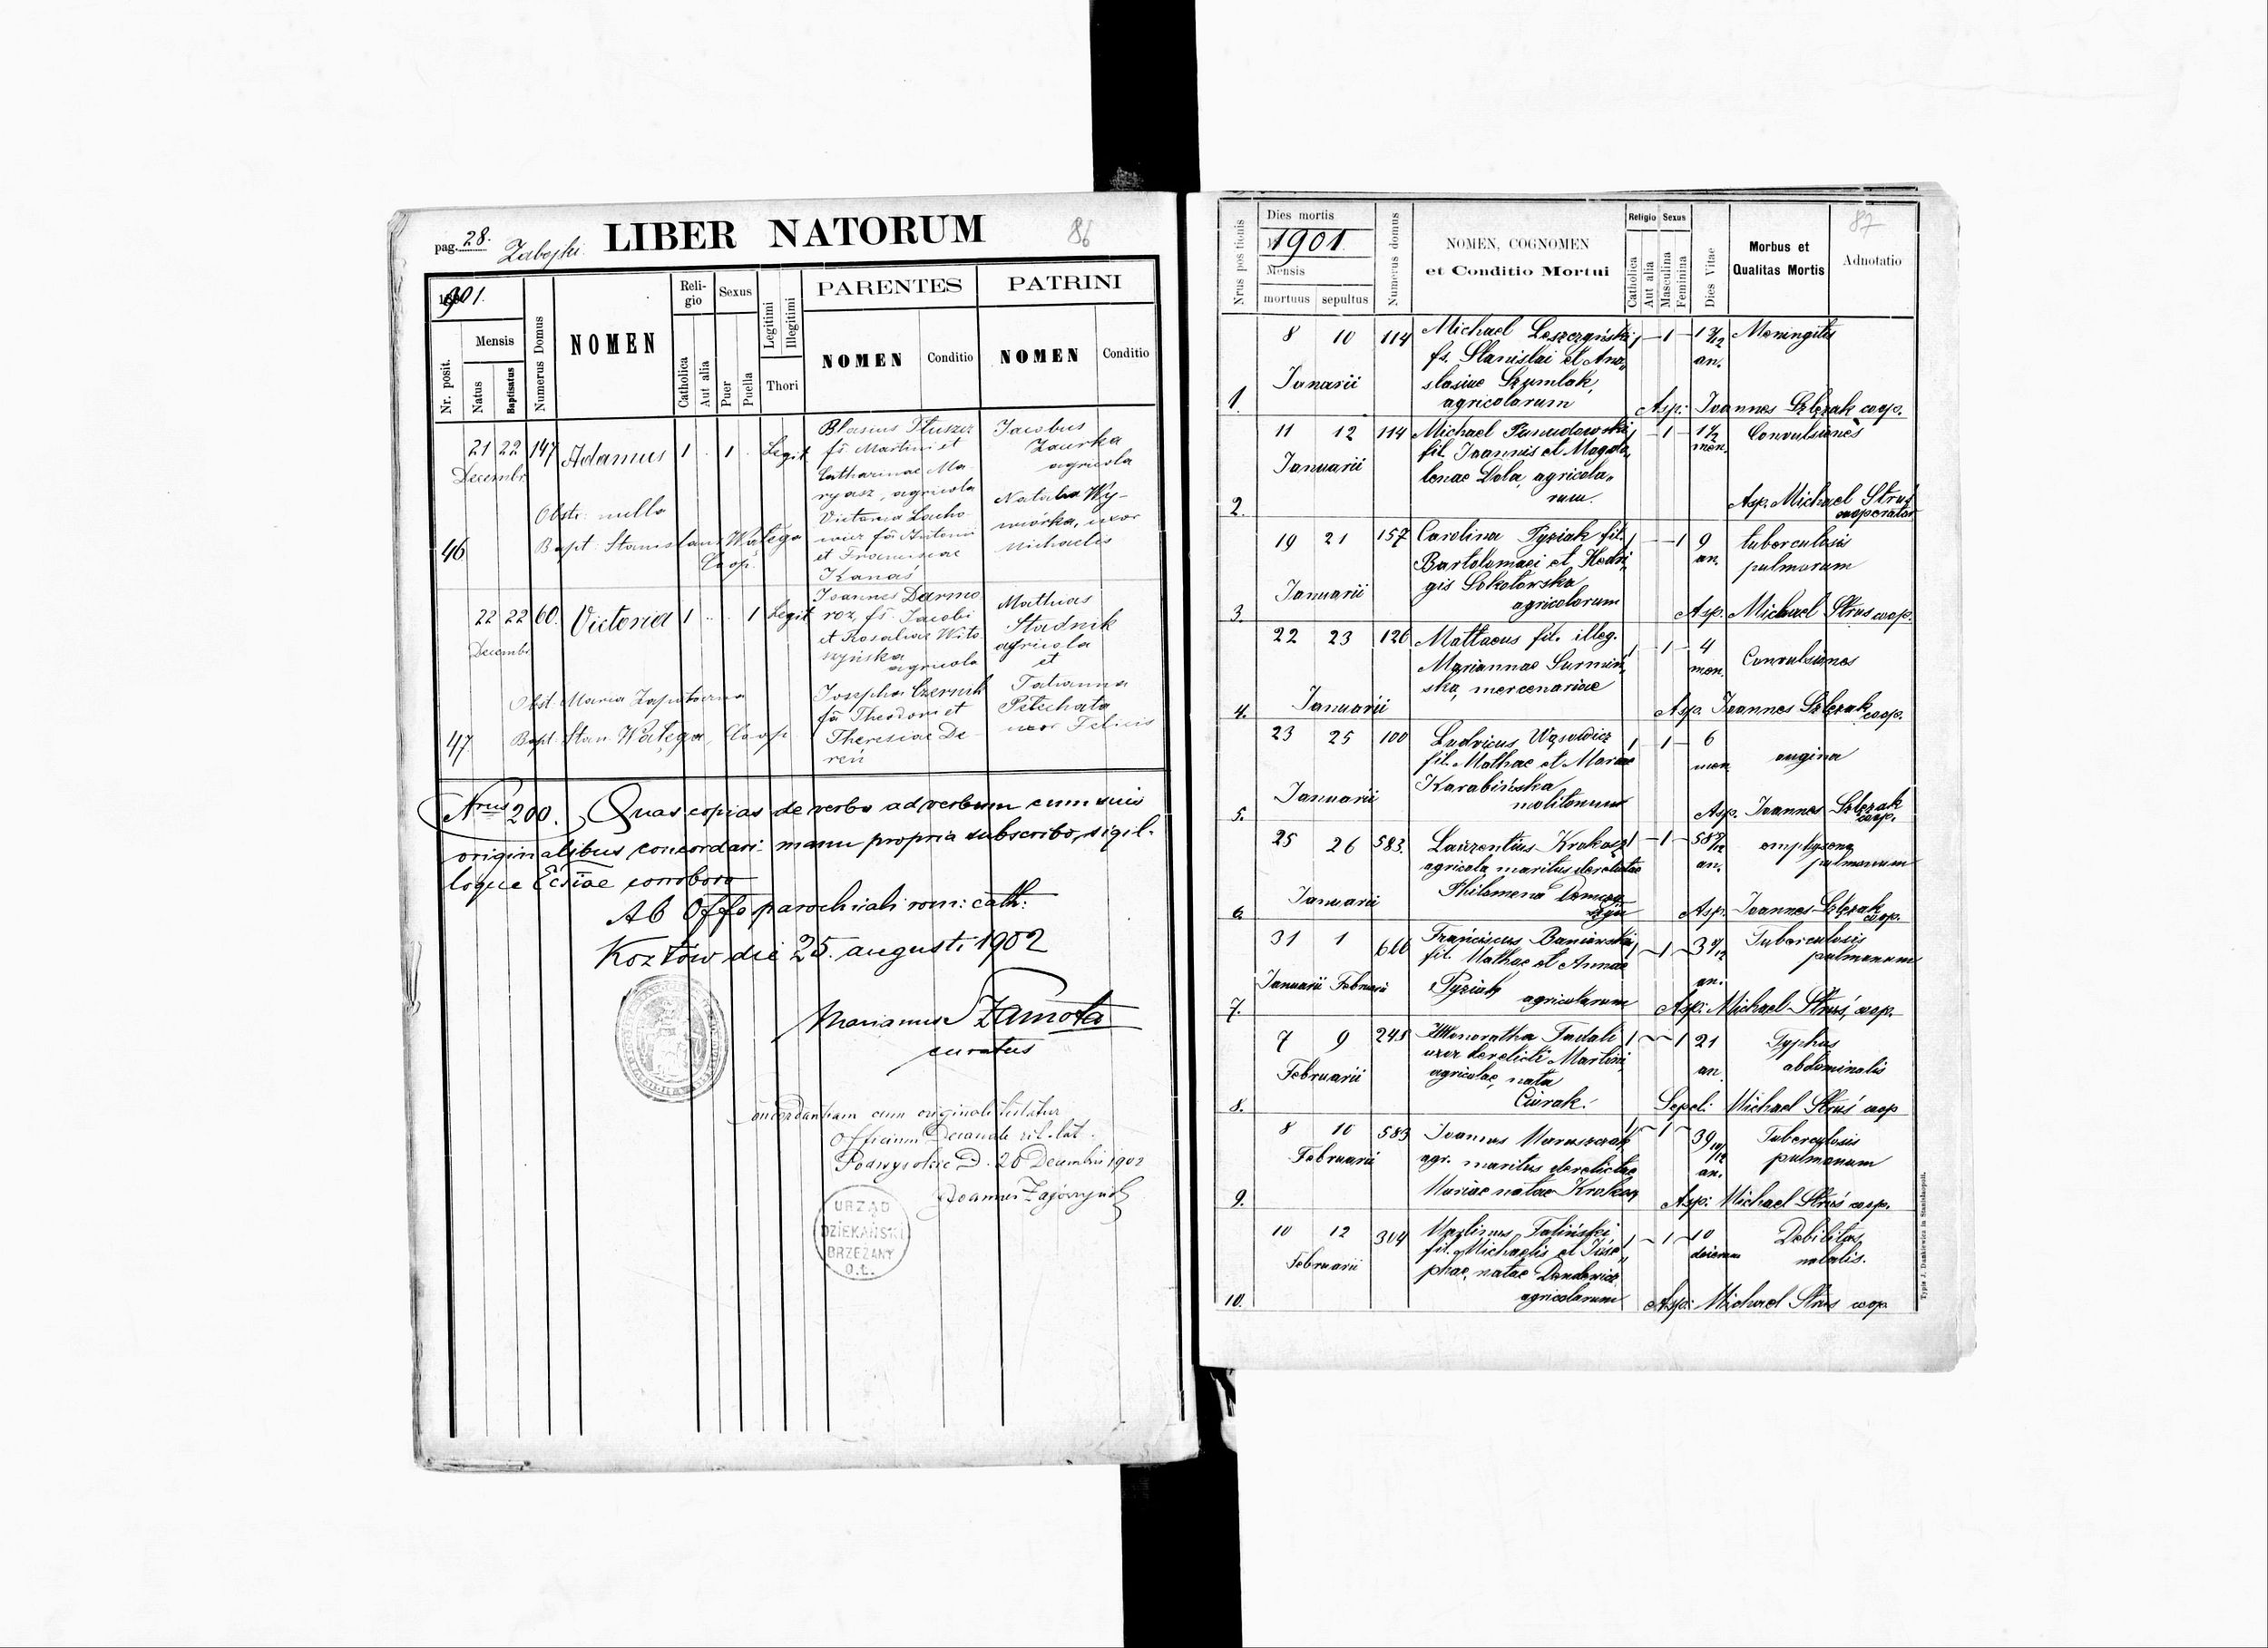 pag. 28.
Zabojki.
LIBER NATORUM
86
1901.
Nr. posit.
Mensis
Natus
Baptisatus
Numerus Domus
NOMEN
Religio
Catholica
Aut alia
Sexus
Puer
Puella
Legitimi
Illegitimi
Thori
PARENTES
NOMEN
Conditio
PATRINI
NOMEN
Conditio
46
21 22 147 Adamus 1 . 1 . Legit
Decembr.
Obstr. nulla
Bapt. Stanislaus Wałęga
Coop.
Blasius Tłuszcz
fs Martini et
Catharinae Ma-
ryasz, agricola
Victoria Lacho-
wicz fa Antonii
et Franciscae
Kanaś
Jacobus
Zaurka
agricola
Natalia Wy-
wiórka, uxor
Michaelis
47
22 22 60. Victoria 1 . . 1 Legit
Decembr.
Obst. Maria
Bapt. Stan. Wałęga, Coop.
Joannes Darmo
roz, fs. Jacobi
et Rosaliae Wito
szyńska
agricola
Josepha Czernik
fa Theodori et
Theresiae De
reń
Mathias
Stadnik
agricola
et
Tatianna
Petechata
uxor Felicis
Nrus 200. Quas copias de verbo ad verbum cum suis
originalibus concordari manu propria subscribo, sigil-
loque Ecsiae
Ab Offo parochiali rom: cath:
Kozłów die 25. augusti 1902
Marianus Zamota
curatus
Concordantiam cum originali testatur
Officium Decanale rit. lat.
Podwysokie D. 20 Decembris 1902
Joannes
URZĄD
DZIEKAŃSKI
BRZEŻANY
O.Ł.
87
Nrus positionis
Dies mortis
1901.
Mensis
mortuus
sepultus
Numerus domus
NOMEN, COGNOMEN
et Conditio Mortui
Religio
Catholica
Aut alia
Sexus
Masculina
Feminina
Dies Vitae
Morbus et
Qualitas Mortis
Adnotatio
8 10 114 Michael Leszczyński 1 - 1 - Meningitis
fs. Stanislai et Ana- an.
Januarii stasiae Szumlak,
1. agricolarum Asp: Joannes Ślęzak coop.
11 12 114 Michael 1 - 1 - 1 1/2 Convulsiones
fil. Joannis et Magda- men.
Januarii lenae Dola, agricola-
rum.
2. Asp. Michael Struś
cooperator
19 21 157 Carolina Pyziak fil. 1 - - 1 9 tuberculosis
Bartolomaei et Hedvi- an. pulmonum
Januarii gis Sokołowska
agricolarum
3. Asp. Michael Strus coop.
22 23 126 Mattaeus fil. illeg. 1 - 1 - 4
Mariannae Surmiń- men. Convulsiones
ska, mercenariae
4. Januarii Asp. Joannes Ślęzak coop.
23 25 100 Ludvicus Wąsowicz 1 - 1 - 6
fil. Mathae et Mariae men. angina
Januarii Karabińska
molitorum
5. Asp. Joannes Ślęzak
coop.
25 26 583. Laurentius Krokosz 1 - 1 -
agricola maritus derelictae an. pulmonum
Januarii Philomena
6. Asp. Joannes Ślęzak
coop.
31 1 Franciscus Baniowski 1 - 1 - Tuberculosis
fil. Mathae et Annae pulmonum
Januarii Februarii Pyziak agricolarum an.
7. Asp: Michael Struś, coop.
7 9 Honoratha Tadali 1 - - 1 21 Typhus
uxor derelicti Martini an. abdominalis
Februarii agricolae, nata
Ciurak.
8. Sepel: Michael Struś coop
8 10 583 Joannes Maruszczak 1 - 1 - 39 10/12 Tuberculosis
Februarii agr. maritus derelictae an. pulmonum
Mariae natae Krokosz
9. Asp: Michael Struś coop.
10 12 304 Martinus Taliński 1 - 1 - 10 Debilitas
fil. Michaelis et Jose- dierum natalis.
Februarii phae, natae
agricolarum
10. Asp: Michael Strus coop
Typis J. Dankiewicz in Stanislaopoli.